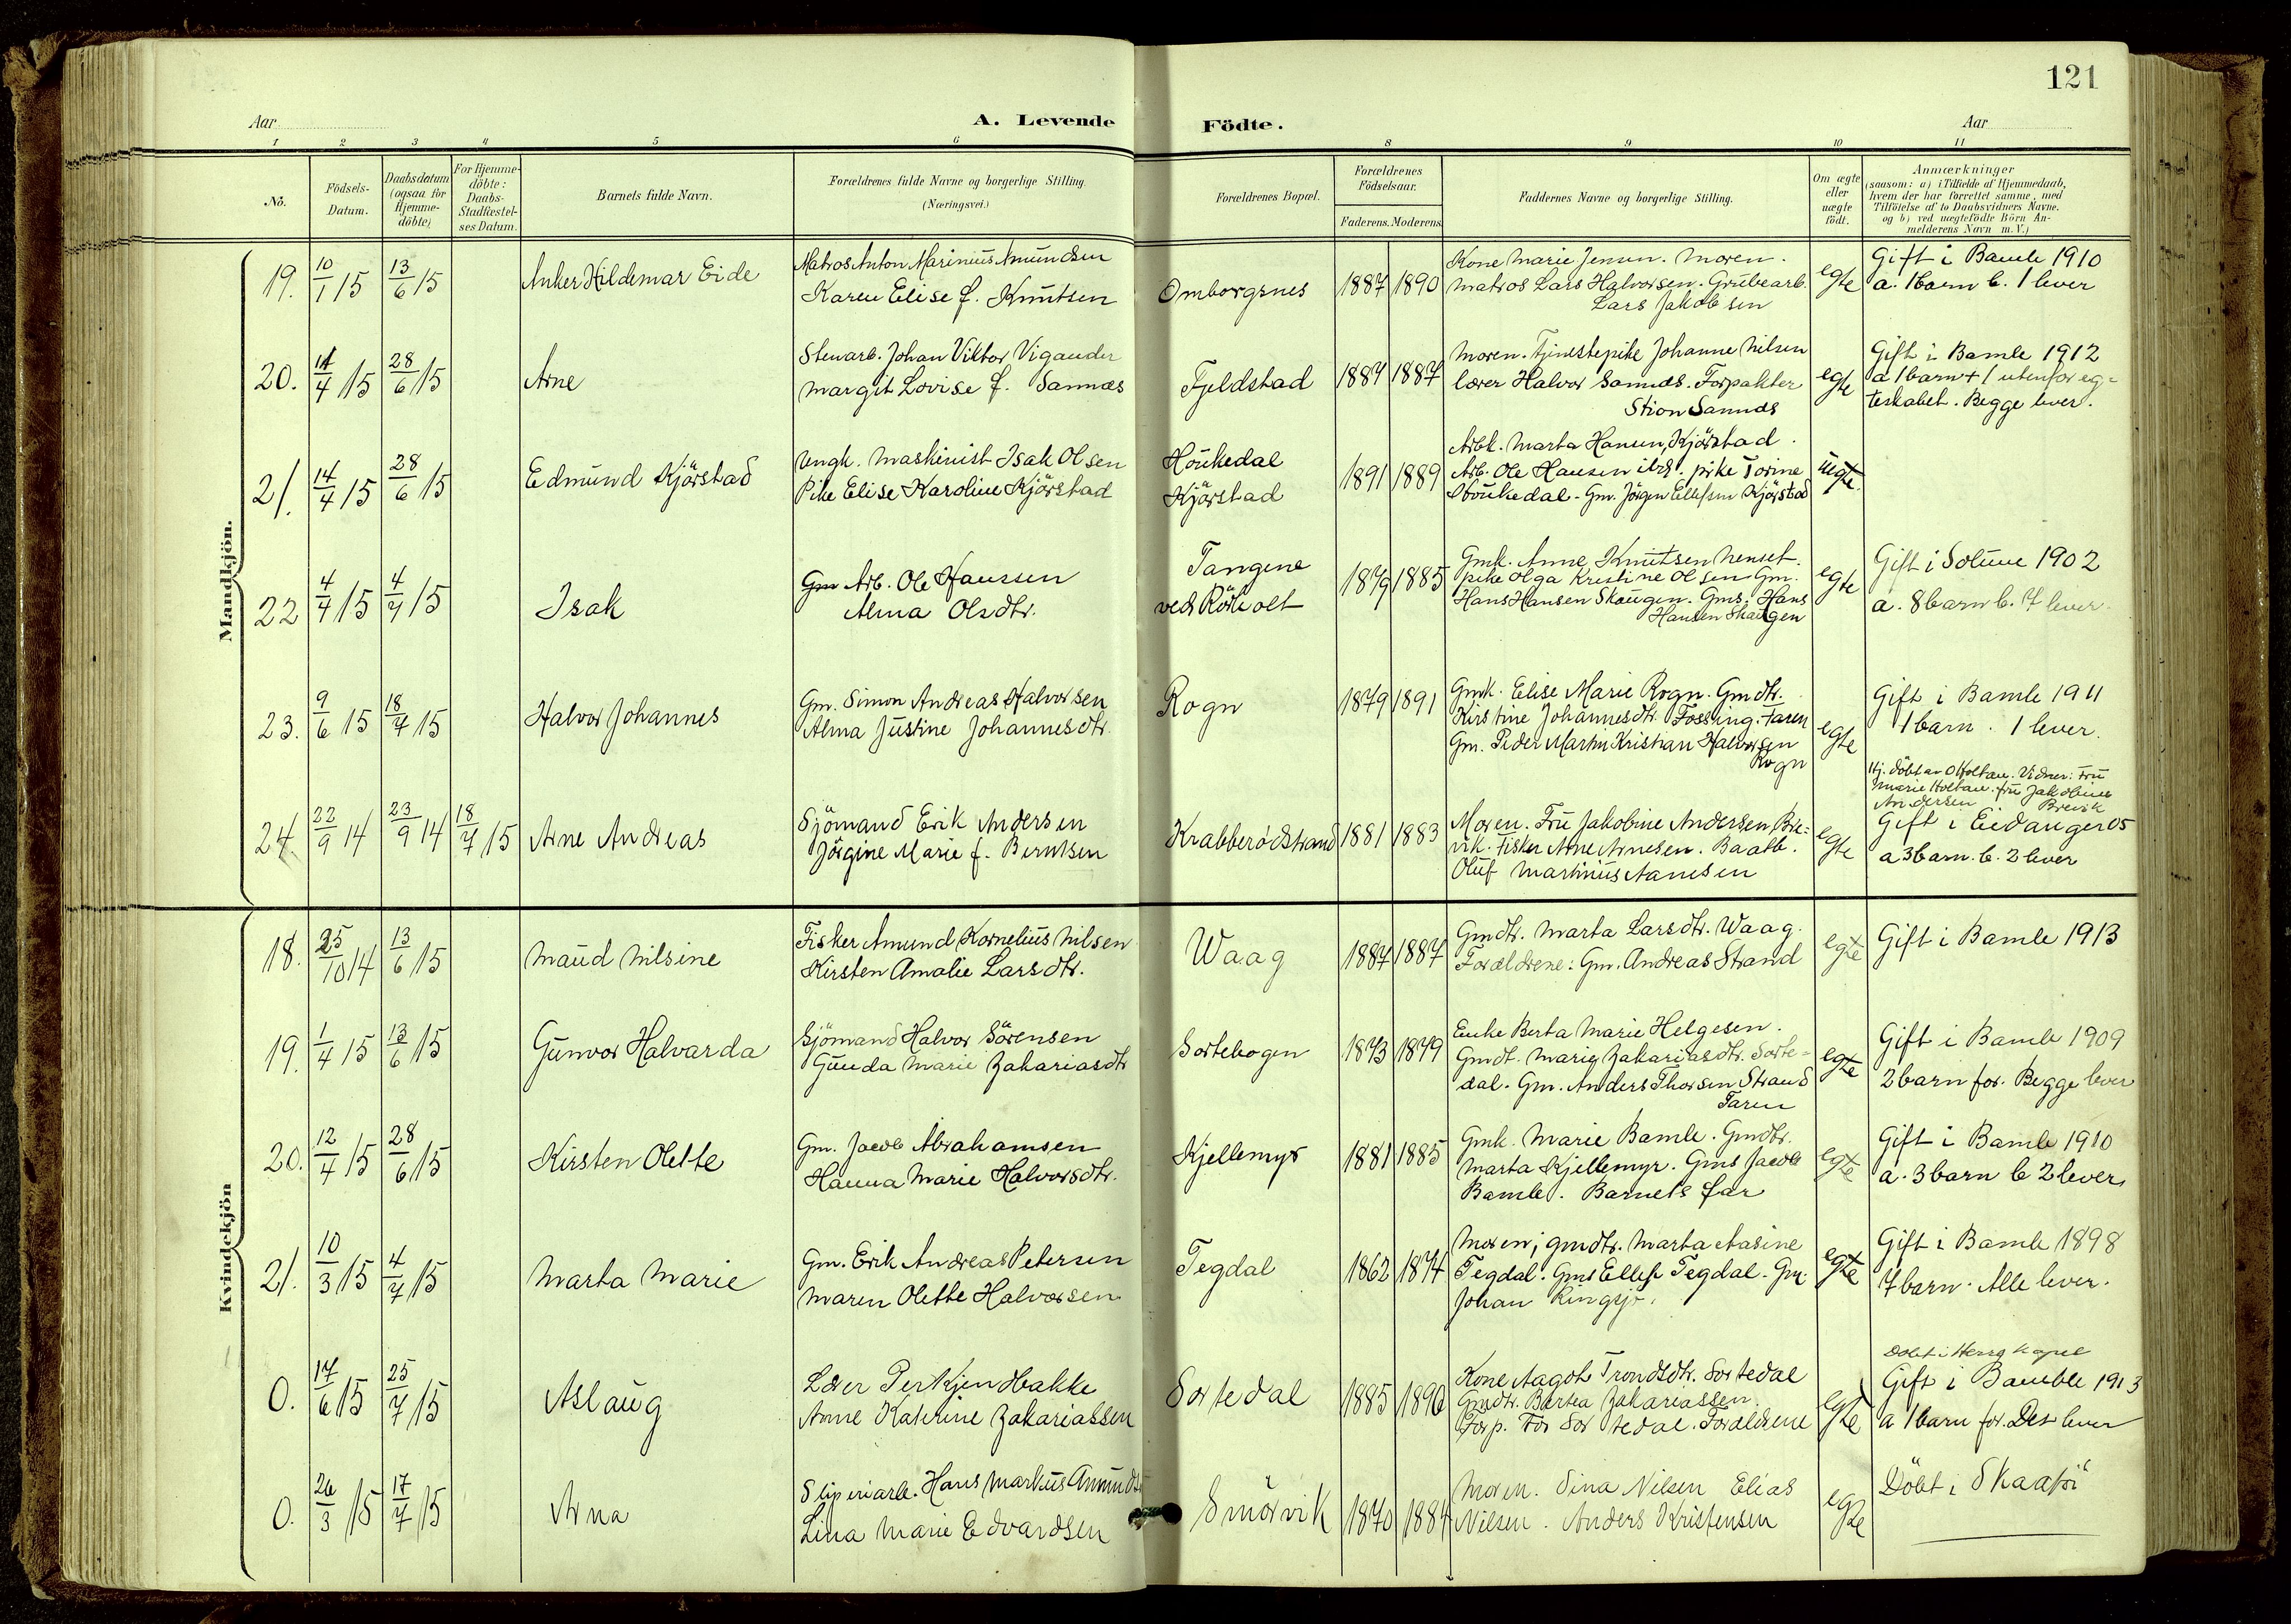 121
Aar
A. Levende
Födte.
Aar
1 2 3 4 5 6 8 9 10 11
No.
Födsels-
Datum.
Daabsdatum
(ogsaa for
Hjemme-
döbte)
For Hjemme-
döbte:
Daabs-
Stadfæstel-
ses Datum.
Barnets fulde Navn.
Forældrenes fulde Navne og borgerlige Stilling.
(Næringsvei.)
Forældrenes Bopæl.
Forældrenes
Födselsaar.
Faderens. Moderens.
Faddernes Navne og borgerlige Stilling.
Om ægte
eller
uægte
født.
Anmærkninger
(saasom: a) i Tilfælde af Hjemmedaab,
hvem der har forrettet samme, med
Tilföielse af to Daabsvidners Navne.
og b) ved uægtefödte Börn An-
melderens Navn m. V.)
Mandkjön.
19. 10/1 15 13/6 15
Anker Hildemar Eide
Matros Anton Marinius Amundsen
Karen Elise f. Knutsen
Omborgsnes
1887 1890
Kone Marie Jensen. Moren.
Matros Lars Halvorsen. Grubearb.
Lars Jakobsen
egte
Gift i Bamle 1910
a. 1 barn b. 1 lever
20. 14/4 15 28/6 15
Arne
Stenarb. Johan Viktor Vigander
Margit Lovise f. Sannæs
Fjeldstad
1887 1887
Moren. Tjenestepike Johanne Nilsen
lærer Halvor Sannæs. Forpakter
Stion Sannæs
egte
Gift i Bamle 1912
a 1 barn + 1 utenfor eg-
teskabet. Begge lever.
21. 14/4 15 28/6 15
Edmund Kjörstad
Ungk. Maskinist Isak Olsen
Pike Elise Karoline Kjörstad
Höukedal
Kjörstad
1891 1889
Arbk. Marta Hansen, Kjörstad.
Arb. Ole Hansen ibd. pike Torine
Stoukedal - Gm. Jörgen Ellefsen Kjörstad
uegte
22 4/4 15 4/7 15
Isak
Gm Arb. Ole Hanssen
Alma Olsdtr.
Tangene
ved Rörholt
1879 1885
Gmk. Anne Knutsen Nenset.
pike Olga Kristine Olsen Gm.
Hans Hansen Skaugen. Gms. Hans
Hansen Skaugen
egte
Gift i Solum 1902
a. 8 barn b. 7 lever.
23. 9/6 15 18/7 15
Halvor Johannes
Gm. Simon Andreas Halvorsen
Alma Justine Johannesdtr.
Rogn
1879 1891
Gmk. Elise Marie Rogn. Gmdtr.
Kirstine Johannesdtr. Fossing. Faren
Gm. Peder Martin Kristian Halvorsen
Rogn
egte
Gift i Bamle 1911
1 barn. 1 lever.
24. 22/9 14 23/9 14 18/7 15
Arne Andreas
Sjömand Erik Andersen
Jörgine Marie f. Berntsen
Krabberødstrand
1881 1883
Moren. Fru Jakobine Andersen, Bre-
vik. Fisker Arne Arnesen. Baatb.
Oluf Martinius Aamsen
egte
Hj. döbt av O Holtan. Vidner: Fru
Marie Holtan. fru Jakobine
Andersen Brevik
Gift i Eidanger 05
a 3 barn. b. 2 lever
Kvindekjön
18. 25/10 14 13/6 15
Maud Nilsine
Fisker Amund Kornelius Nilsen
Kirsten Amalie Larsdtr.
Waag
1887 1887
Gmdtr. Marta Larsdtr. Waag.
Forældrene: Gm. Andreas Strand
egte
Gift i Bamle 1913
19. 1/4 15 13/6 15
Gunvor Halvarda
Sjömand Halvor Sörensen
Gunda Marie Zakariasdtr
Sortebogen
1873 1879
Enke Berta Marie Helgesen.
Gmdt. Marie Zakariasdtr. Sorte-
dal. Gm. Anders Thorsen Strand
Faren
egte
Gift i Bamle 1909
2 barn for. Begge lever
20. 12/4 15 28/6 15
Kirsten Olette
Gm. Jacob Abrahamsen
Hanna Marie Halvorsdtr.
Kjellemyr
1881 1885
Gmk. Marie Bamle. Gmdtr.
Marta Kjellemyr. Gms Jacob
Bamle. Barnets far
egte
Gift i Bamle 1910
a. 3 barn b 2 lever
21. 10/3 15 4/7 15
Marta Marie
Gm. Erik Andreas Petersen
Maren Olette Halvorsen
Tegdal
1862 1874
Moren; gmdtr. Marta Aasine
Tegdal. Gms Ellef Tegdal. Gm
Johan Ringsjö.
egte
Gift i Bamle 1898
7 barn. Alle lever.
0. 17/6 15 25/7 15
Aslaug
Lærer Per Kjendbakke
Anne Katerine Zakariassen
Sortedal
1885 1890
Kone Aagot Trondsdtr. Sortedal
Gmdtr. Bertea Zakariassen.
Forp. Tor Sortedal. Forældrene
egte
Döbt i Herrg kapel
Gift i Bamble 1913
a 1 barn før. Det lever
0. 26/3 15 17/7 15
Arna
Sliperiarb. Hans Markus Amunds
Lina Marie Edvardsen
Smörvik
1870 1884
Moren. Sina Nilsen Elias
Nilsen. Anders Kristensen
egte
Döbt i Skaatö